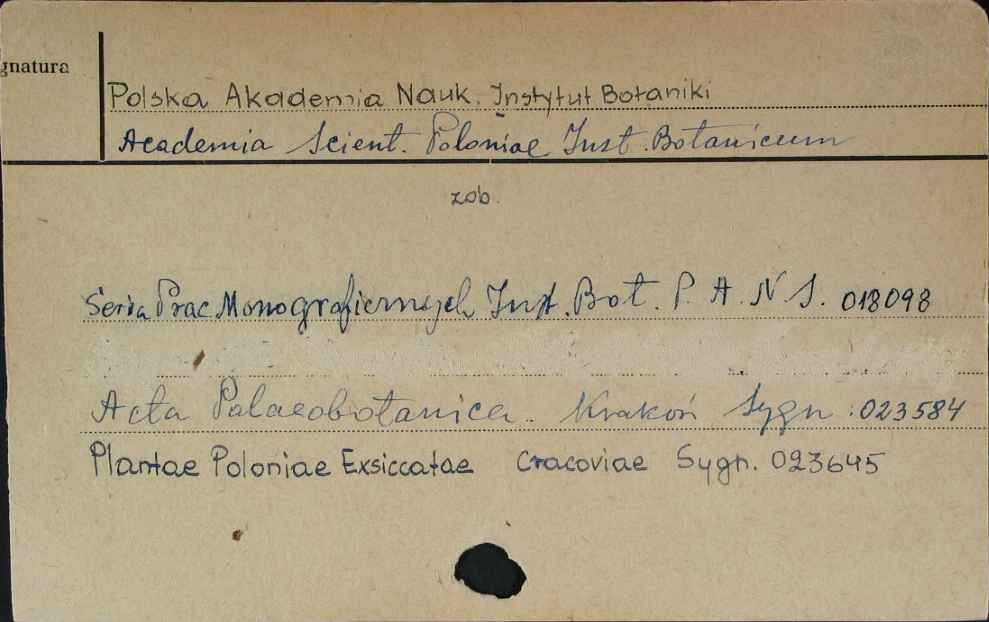 gnatura
Polska Akademia Nauk. Instytut Botaniki
Academia Scient. Poloniae Inst. Botanicum
zob.
Seria Prac Monograficznych Inst. Bot. P. A. N. S. 018098
Acta Palaeobotanica. Kraków Sygn. 023584
Plantae Poloniae Exsiccatae Cracoviae Sygn. 023645